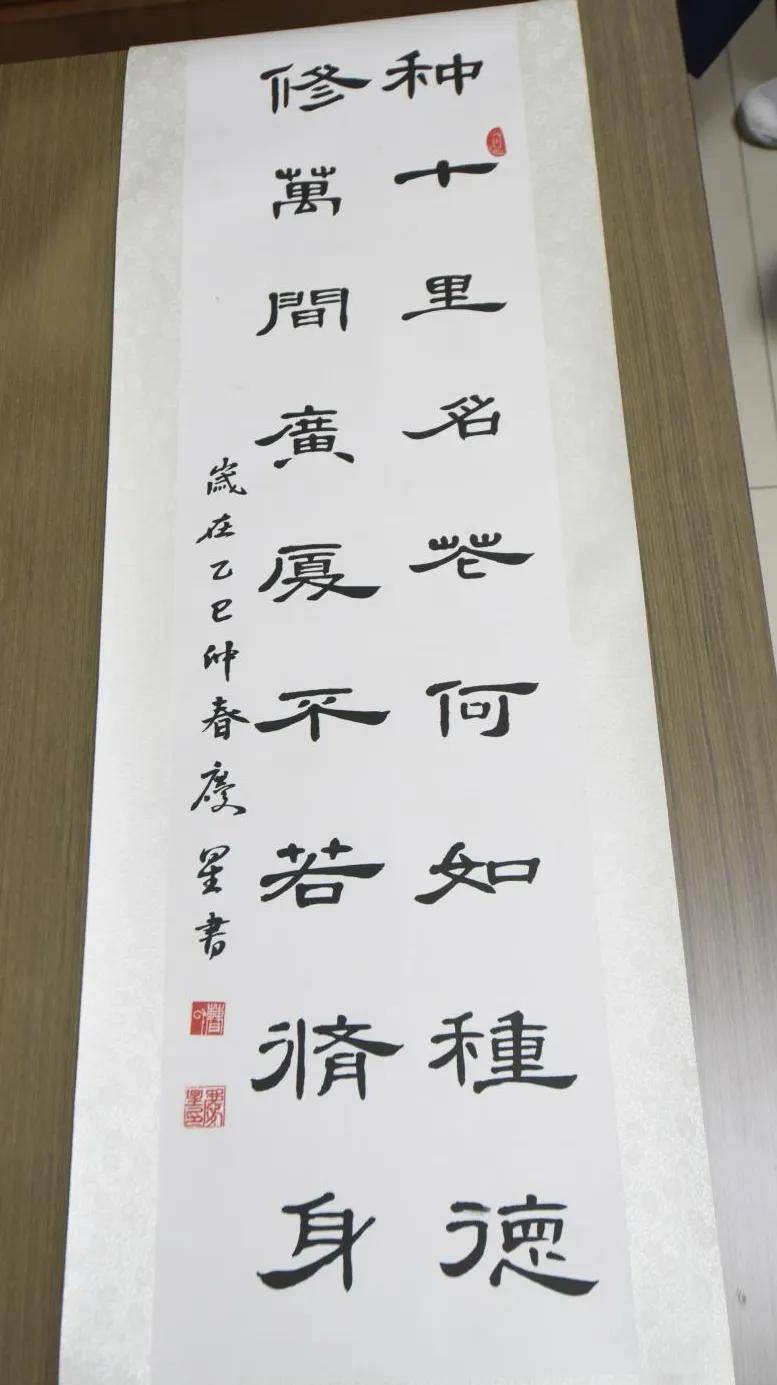 种十里名花何如種德
修萬間廣厦不若脩身
歲在乙巳仲春慶星書